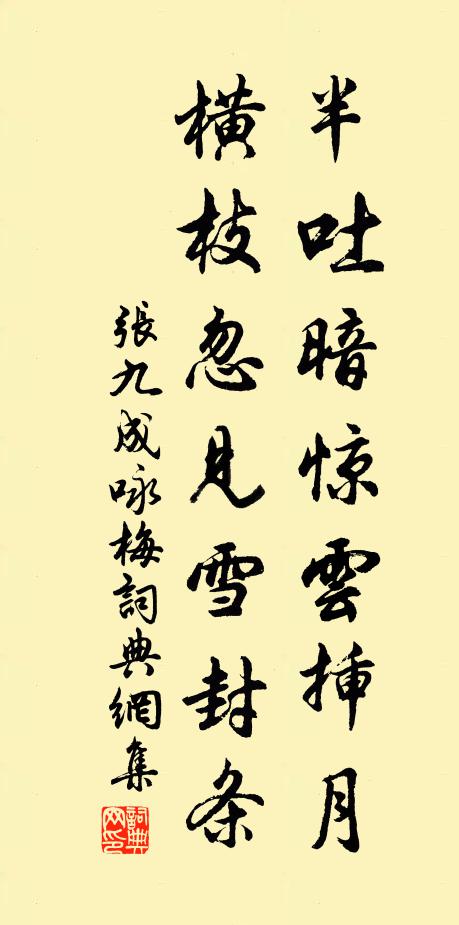 半吐暗惊雲挿月
橫枝忽見雪封条
張九成咏梅詞典網集
詞典网印